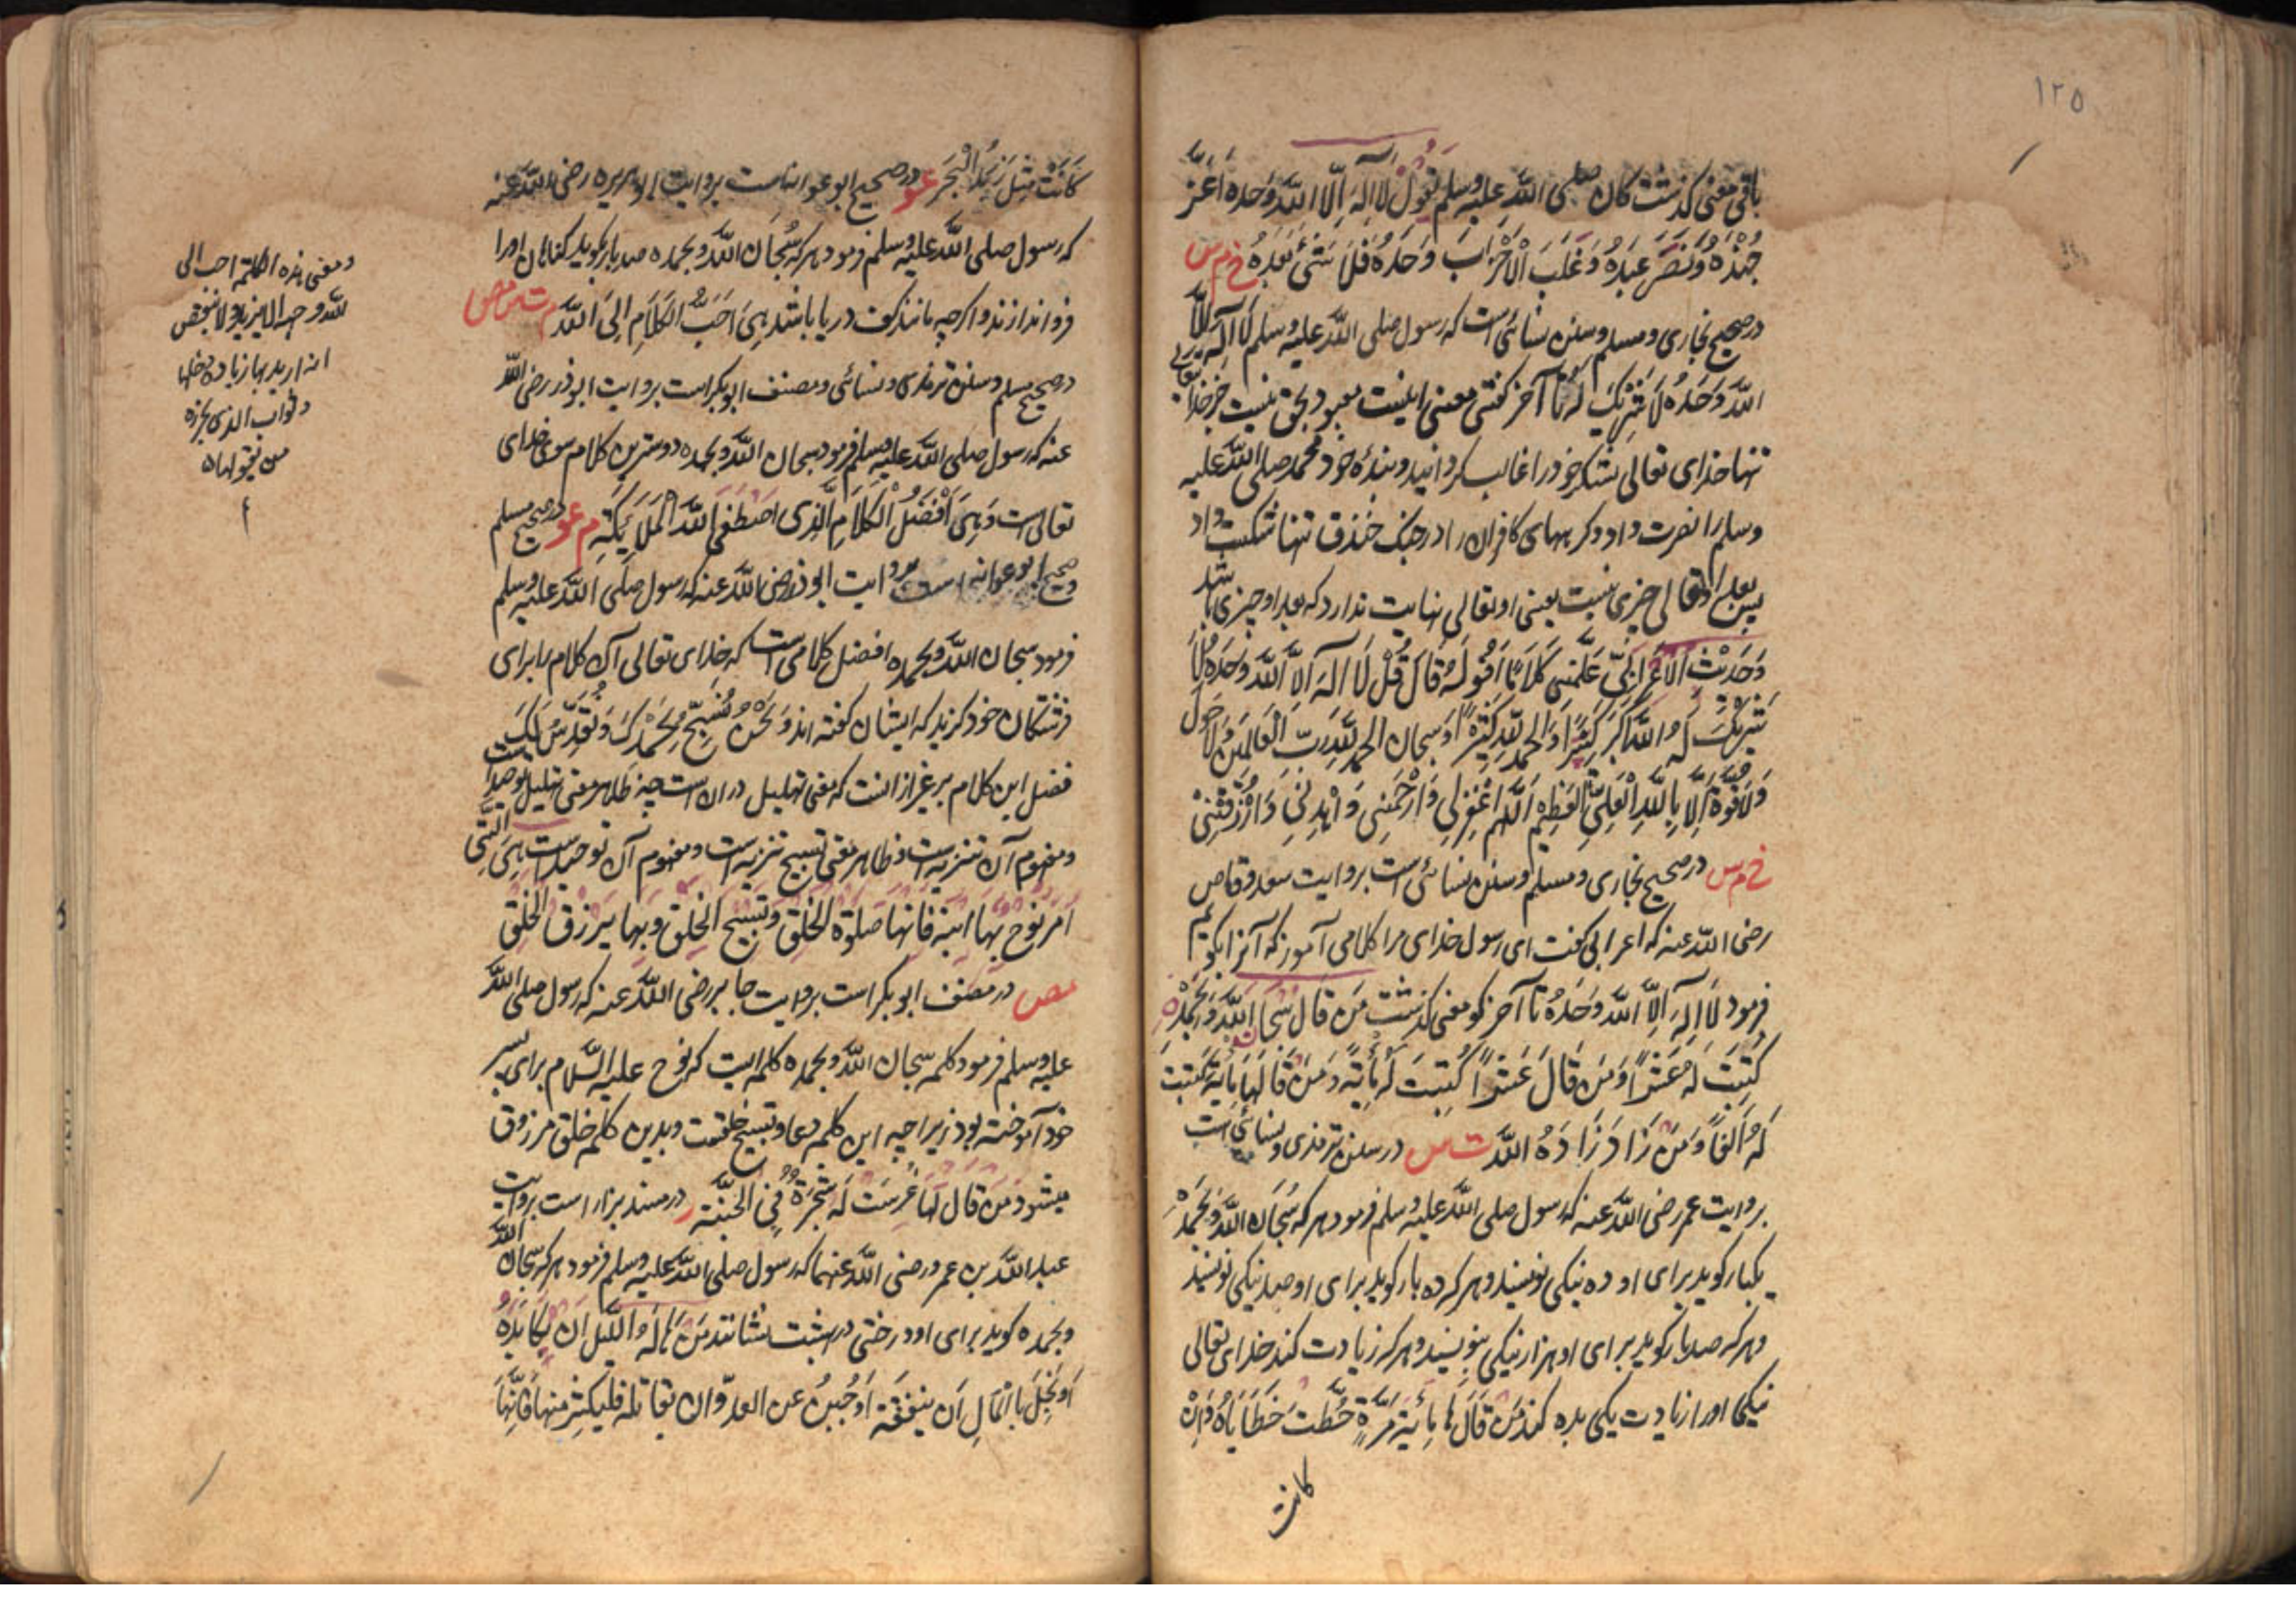 ١٢٥
باقی معنی گذشت کان صلی الله علیه وسلم یقول لا اله الا الله وحده اعز
جنده ونصر عبده وغلب الاحزاب وحده فلا شیء بعده خ م س
در صحیح بخاری ومسلم وسنن نسائی است که رسول صلی الله علیه وسلم لا اله الا
الله وحده لا شریک له تا آخر گفتی معنی اینست معبود بحق نیست جز خدای تعالی
تنها خدای تعالی لشکر خود را غالب گردانید وبندهٔ خود محمد صلی الله علیه
وسلم را نصرت داد وگروههای کافران را در جنگ خندق تنها شکست داد
پس بعد او تعالی چیزی نیست یعنی او تعالی نهایت ندارد که بعد او چیزی باشد
وحدیث الاعرابی علمنی کلاما اقوله قال قل لا اله الا الله وحده لا
شریک له الله اکبر کبیرا والحمد لله کثیرا وسبحان الحمد لله رب العالمین لا حول
ولا قوة الا بالله العلی العظیم اللهم اغفر لی وارحمنی واهدنی وارزقنی
خ م س در صحیح بخاری ومسلم وسنن نسائی است بروایت سعد وقاص
رضی الله عنه که اعرابی گفت ای رسول خدای مرا کلامی آموز که آنرا بگویم
فرمود لا اله الا الله وحده تا آخر گو معنی گذشت من قال سبحان الله وبحمده
کتبت له عشرا ومن قال عشرا کتبت له مأیة ومن قالها مأیة کتبت
له الفا ومن زاد زاده الله ت س در سنن ترمذی ونسائی است
بروایت عمر رضی الله عنه که رسول صلی الله علیه وسلم فرمود هر که سبحان الله وبحمده
یکبار گوید برای او ده نیکی نویسند وهر که ده بار گوید برای او صد نیکی نویسند
وهر که صد بار گوید برای او هزار نیکی بنویسند وهر که زیادت کند خدای تعالی
نیکی اورا زیادت یکی بده کند من قالها مأیة مرة حطت خطایاه وان
کانت
کانت مثل زبد البحر عو در صحیح ابو عوانه است بروایت ابو هریره رضی الله عنه
که رسول صلی الله علیه وسلم فرمود هر که سبحان الله وبحمده صد بار گوید گناهان اورا
فرو اندازند واگرچه مانند کف دریا باشد هی احب الکلام الی الله م ت س مص
در صحیح مسلم وسنن ترمذی ونسائی ومصنف ابو بکر است بروایت ابو ذر رضی الله
عنه که رسول صلی الله علیه وسلم فرمود سبحان الله وبحمده دوسترین کلام سوی خدای
تعالی است وهی افضل الکلام الذی اصطفی الله الملائکته م عو در صحیح مسلم
وصحیح ابو عوانه است بروایت ابو ذر رضی الله عنه که رسول صلی الله علیه وسلم
فرمود سبحان الله وبحمده افضل کلامی است که خدای تعالی آن کلام را برای
فرشتگان خود گزید که ایشان گفته اند ونحن نسبح بحمدک ونقدس لک
فضل این کلام بر غیر از آنست که معنی تهلیل در آن است چه ظاهر معنی تهلیل توحید است
ومفهوم آن تنزیه است وظاهر معنی تسبیح تنزیه است ومفهوم آن توحید است هی التی
امر نوح بها ابنه فانها صلوة الخلق وتسبیح الخلق وبها یرزق الخلق
مص در مصنف ابو بکر است بروایت جابر رضی الله عنه که رسول صلی الله
علیه وسلم فرمود کلمه سبحان الله وبحمده کلمه ایست که نوح علیه السلام برای پسر
خود آموخته بود زیرا چه این کلمه دعا وتسبیح خلقست وبدین کلمه خلق مرزوق
میشود من قال لها غرست له شجرة فی الجنة ر در مسند بزار است بروایت
عبد الله بن عمر ورضی الله عنهما که رسول صلی الله علیه وسلم فرمود هر که سبحان الله
وبحمده گوید برای او درختی در بهشت نشانند من هاله اللیل ان یکابده
او بخل بالمال ان ینفقه او جبن عن العدو ان یقاتله فلیکثر منها فانها
ومعنی هذه الکلمة احب الی
الله وجه الا یزید ولا ینقص
انه ارید بها زیادة فضلها
وثواب الذی یجزه
من یقولها